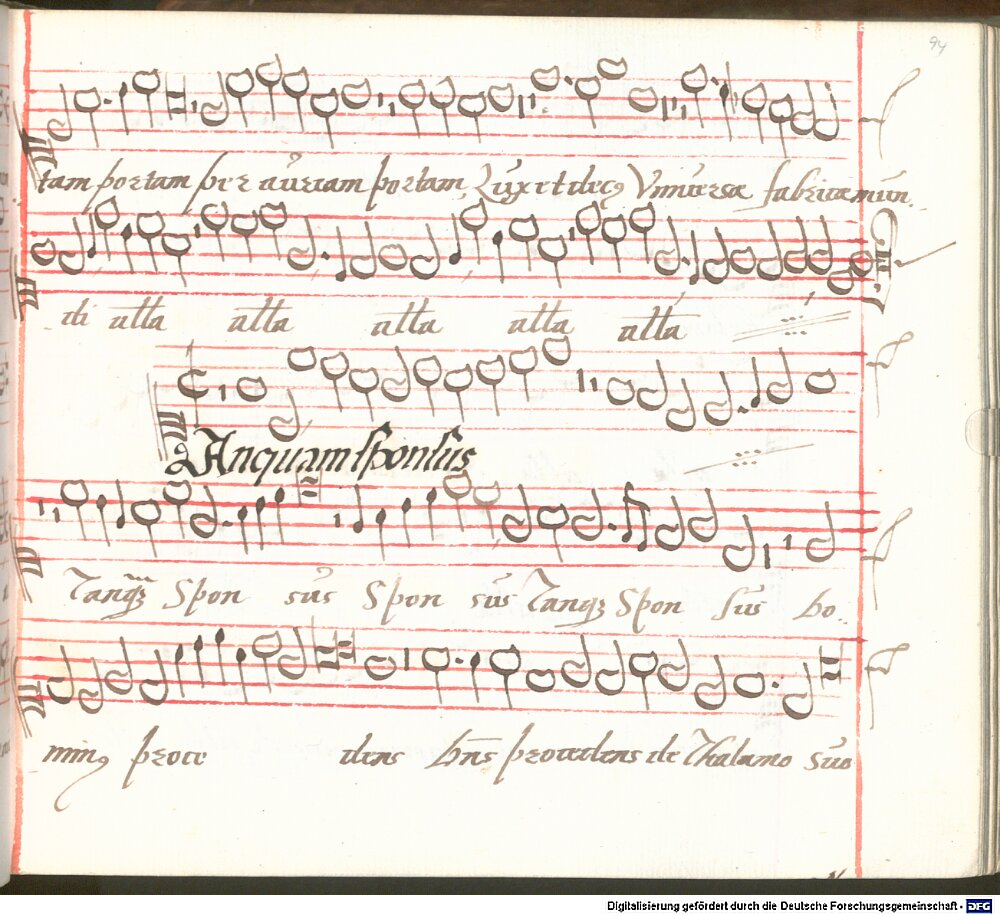 94
tam portam per auream portam Lux et decꝯ Vniuersæ fabricæ mun..
di alla alla alla alla alla
Tanquam sponsus
Tanqȝ Spon sus Spon sus Tanqȝ Spon sus bo..
minꝯ proce dens bn̄s procedens de Thalamo suo
Digitalisierung gefördert durch die Deutsche Forschungsgemeinschaft - DFG